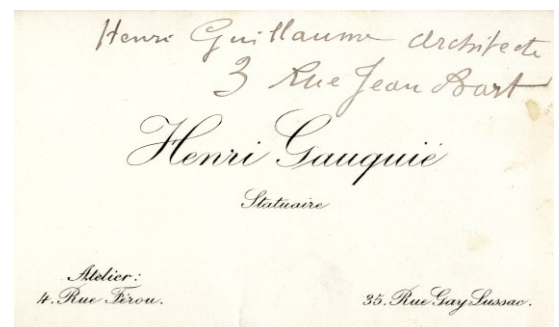 Henri Guillaume architecte
3 Rue Jean Bart
Henri Gauquié
Statuaire
Atelier:
4. Rue Férou.
35. Rue Gay Lussac.